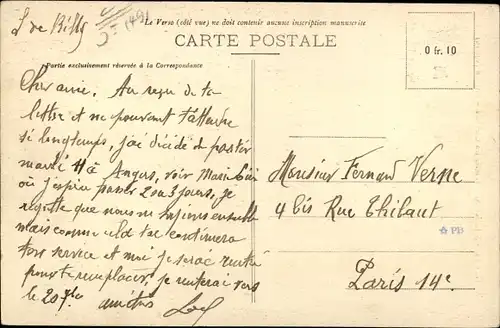 Le Verso (côté vue) ne doit contenir aucune inscription manuscrite
CARTE POSTALE
Partie exclusivement réservée à la Correspondance
0 fr. 10
Cher amie. Au reçu de ta
lettre et ne pouvant t'attendre
si longtemps, j'ai décidé de partir
mardi 4 à Angers, voir Marie
où j'espère passer 2 ou 3 jours, je
regrette que nous ne soyions ensemble
mais comme
ton service et moi je serai rentré
pour te remplacer, je rentrerai vers
le 20
amitiés
Monsieur Fernand Verne
4 bis Rue Thibaut
PB
Paris 14e.